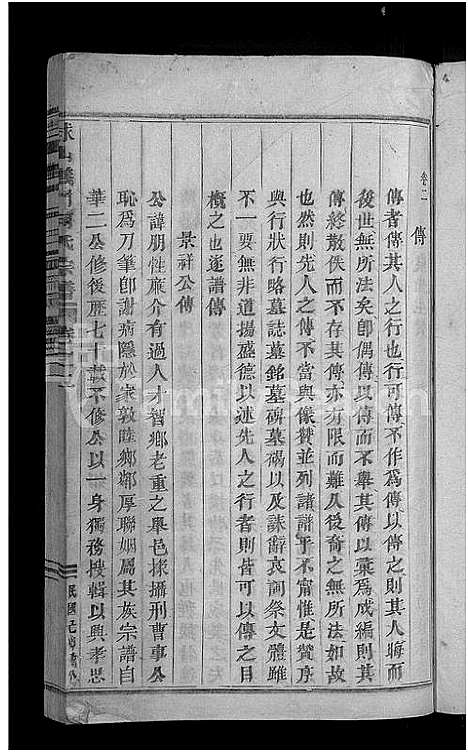 卷二
傳
傳者傳其人之行也行可傳不作爲傳以傳之則其人晦而
後世無所法矣卽偶傳以傳而不舉其傳以棄爲成編則其
傳終散佚而不存其傳亦有限而難久後裔之無所法如故
也然則先人之傳不當與像贊並列諸譜乎不甯惟是贊序
與行狀行略墓誌墓銘墓碑墓碣以及誄辭哀詞祭文體雖
不一要無非道揚盛德以述先人之行者則皆可以傳之目
概之也遂譜傳
景祥公傳
公諱朋性廉介有過人才智鄉老重之舉邑掾攝刑曹事公
恥爲刀筆卽謝病隱於家敦睦鄉鄰厚聯姻屬其族宗譜自
華二公修後歷七十載不修公以一身獨務搜輯以興孝思